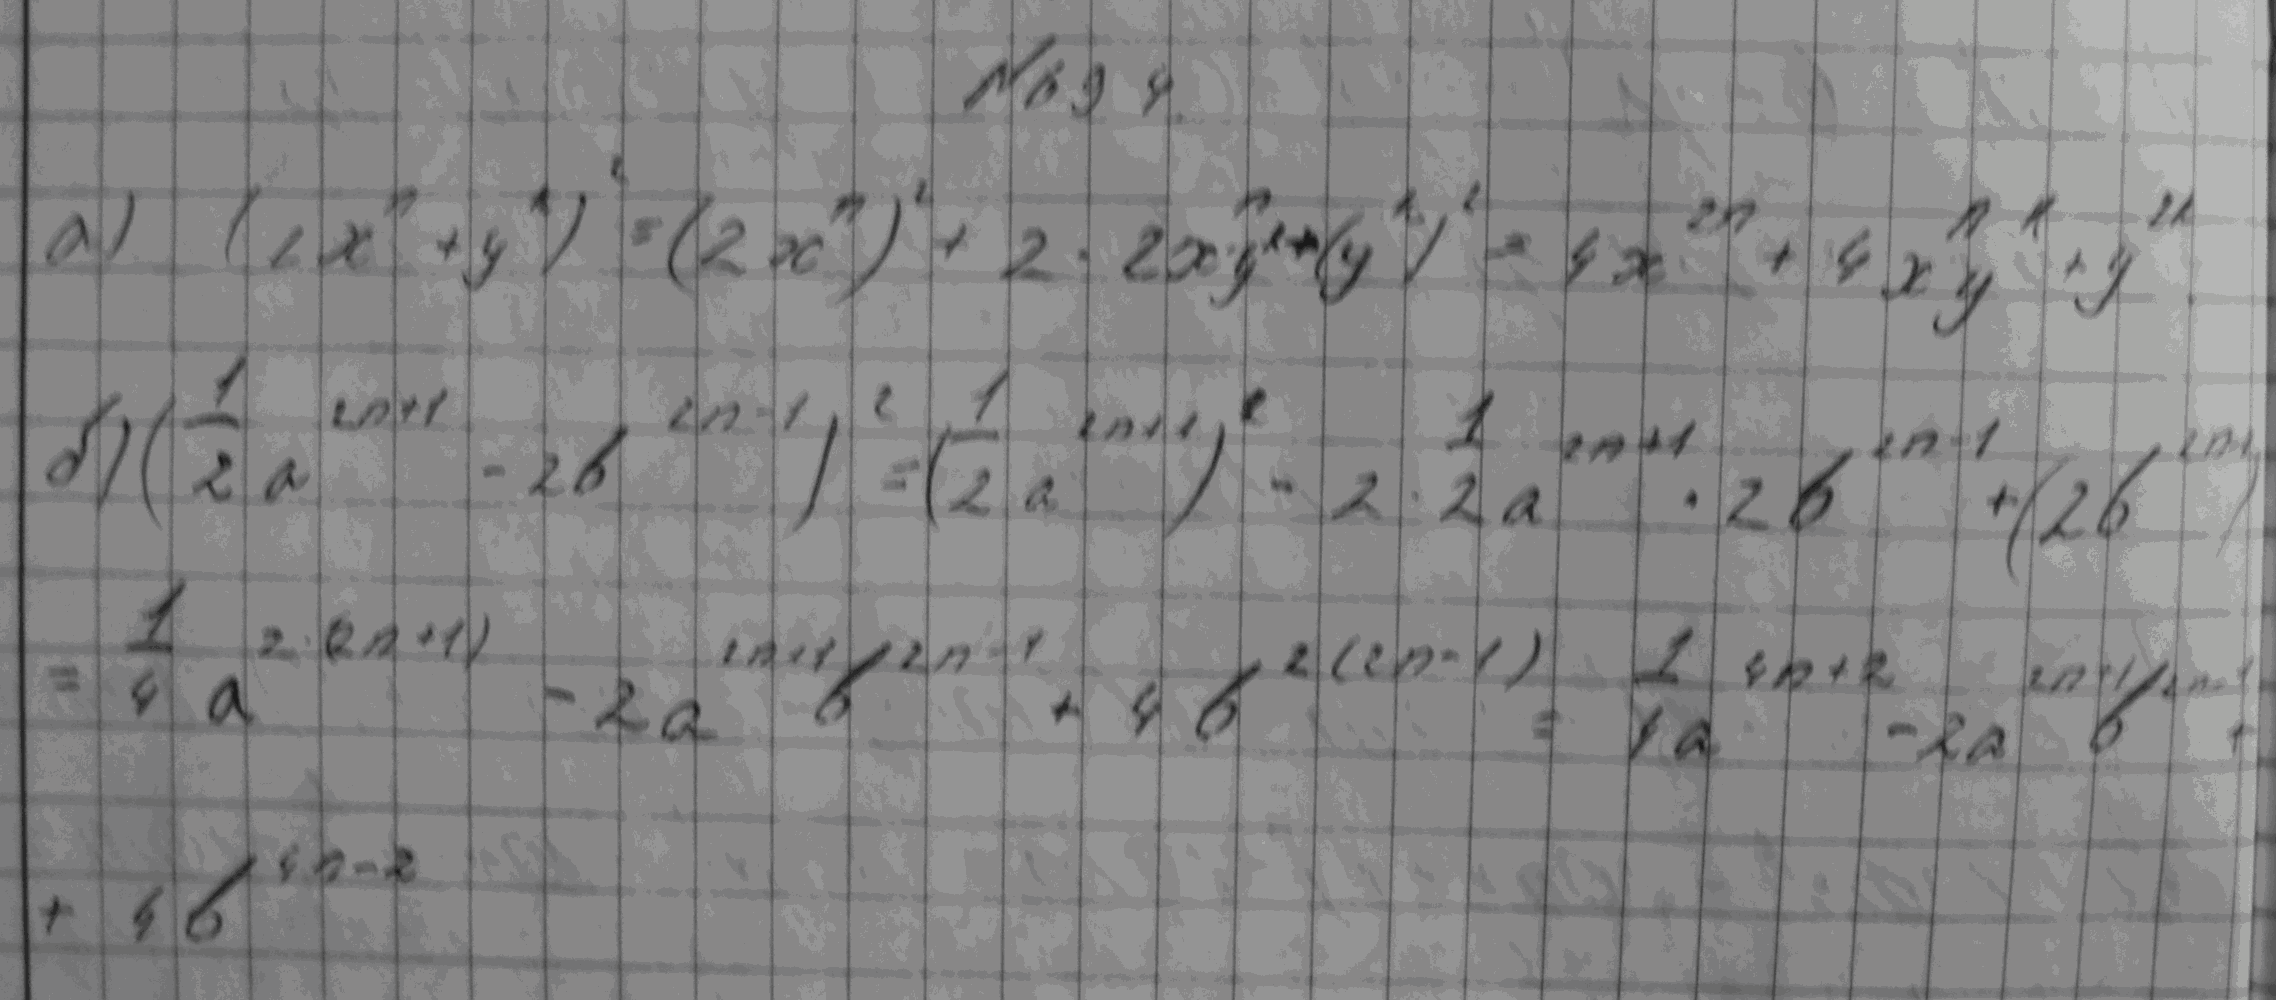 №694
а) (2xⁿ + yᵏ)² = (2xⁿ)² + 2 · 2xⁿyᵏ + (yᵏ)² = 4x²ⁿ + 4xⁿyᵏ + y²ᵏ
б) (1/2 a²ⁿ⁺¹ - 2b²ⁿ⁻¹)² = (1/2 a²ⁿ⁺¹)² - 2 · 1/2 a²ⁿ⁺¹ · 2b²ⁿ⁻¹ + (2b²ⁿ
= 1/4 a²˙⁽²ⁿ⁺¹⁾ - 2a²ⁿ⁺¹b²ⁿ⁻¹ + 4b²⁽²ⁿ⁻¹⁾ = 1/4 a⁴ⁿ⁺² - 2a²ⁿ⁺¹b²ⁿ⁻¹ +
+ 4b⁴ⁿ⁻²